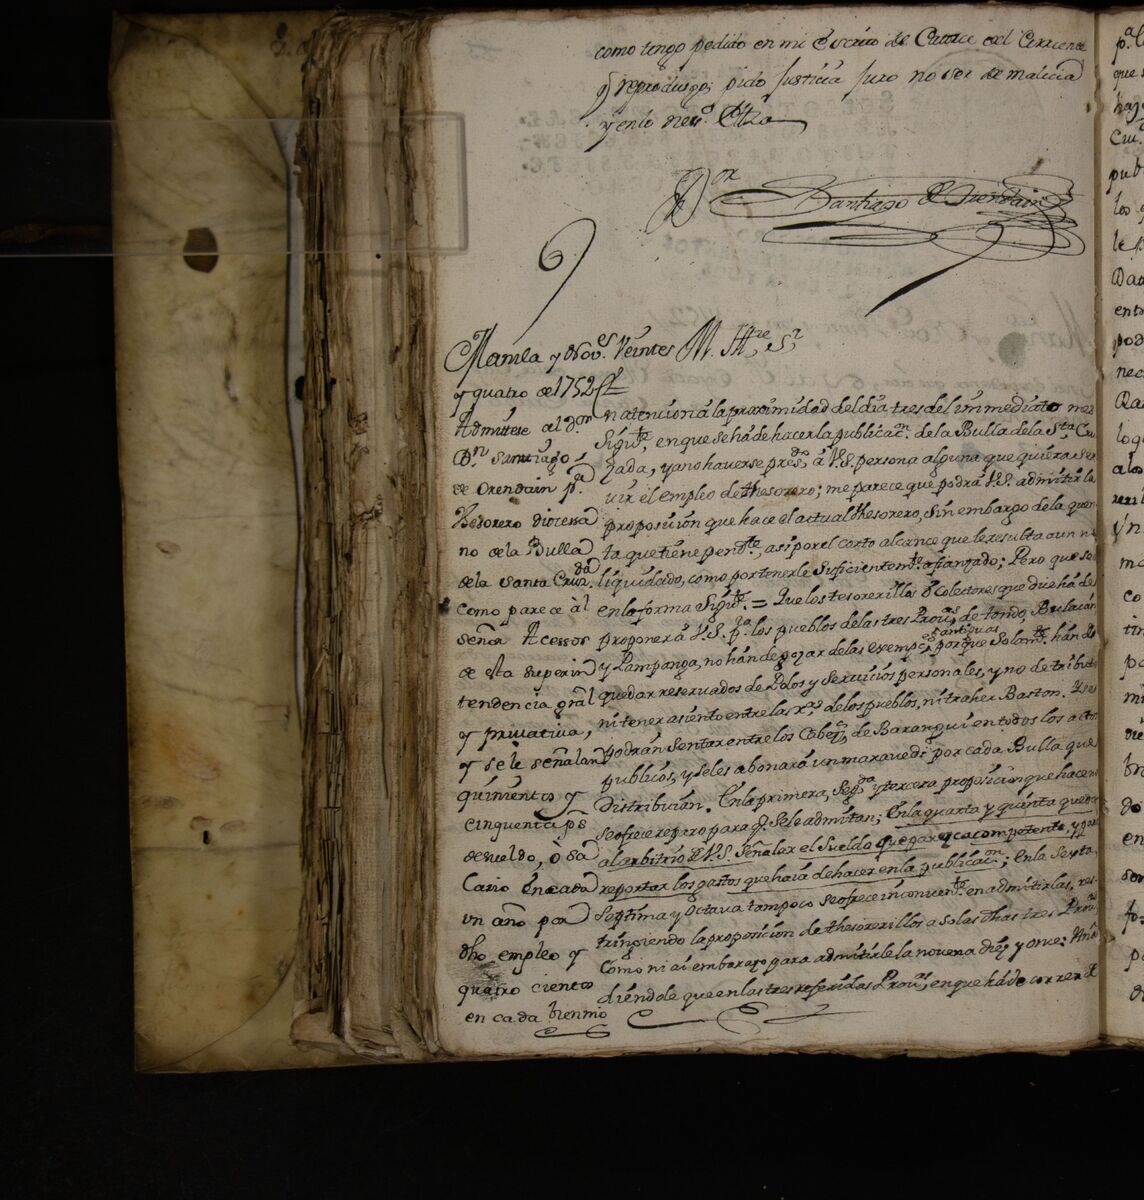 como tengo pedido en mi Escrito de Catorce del Corriente
q̃ reprodusgo; pido Justicia Juro no ser de malicia
y en lo neses.º Etta
D.or Santiago de Orendain
Manila y Nov.e Veinte
y quatro de 1752
Admittese al D.on
D.n Santiago
de Orendain p.a
Thesorero diocesa
no de la Bulla
de la Santa Cruz.da
como parece al
señor Acessor
de esta superin
tendencia gral
y privativa,
y se le señalan
quinientos y
cinquenta p.s
de sueldo, ò sa
lario en cada
un año por
dho empleo y
quatro cientos
en cada bienio
M. Itt.re S.r
En atencion à la proximidad del dia tres del immediato mes
sigu.te, en que se ha de hacer la publicac.n de la Bulla de la S.ta Cru
zada, y a no haverse pres.do à V.S. persona alguna que quiera ser
vir el empleo de thesorero; me parece que podrà V.S. admitir la
proposicion que hace el actual thesorero, sin embargo de la quen
ta que tiene pend.te, asi por el corto alcance que le resulta aun no
liquidado, como por tenerle suficientem.te afianzado; Pero que sea
en la forma sigu.te = Que los tesorerillos ò Colectores que dice hà de
proponer à V.S. p.a los pueblos de las tres Prov.as de tondo, Bulacàn
y Pampanga, no hàn de gozar de las exempc.s antiguas porque solam.te hàn de
quedar reservados de Polos y Servicios personales, y no de tributo
ni tener asiento entre las de los pueblos, ni traher Baston. Y se
podràn sentar entre los Cabez.s de Barangui en todos los actos
publicos, y se les abonarà un maravedi por cada Bulla que
distribuian. En la primera, seg.da y tercera proposicion que hace no
se ofrece reparo para q. se le admitan; En la quarta y quinta queda
al arbitrio de V.S. señalar el sueldo que parezca competente, y para
reportar los gastos que haia de hacer en la publicac.on; En la sexta
septima y octava tampoco se ofrece inconven.te en admitirlas, res
tringiendo la proposicion de thesorerillos a solas dhas tres Prov.as
Como ni ai embarazo para admitirle la novena diez y once: Aña
diendole que en las tres referidas Prov.as, en que hà de correr el